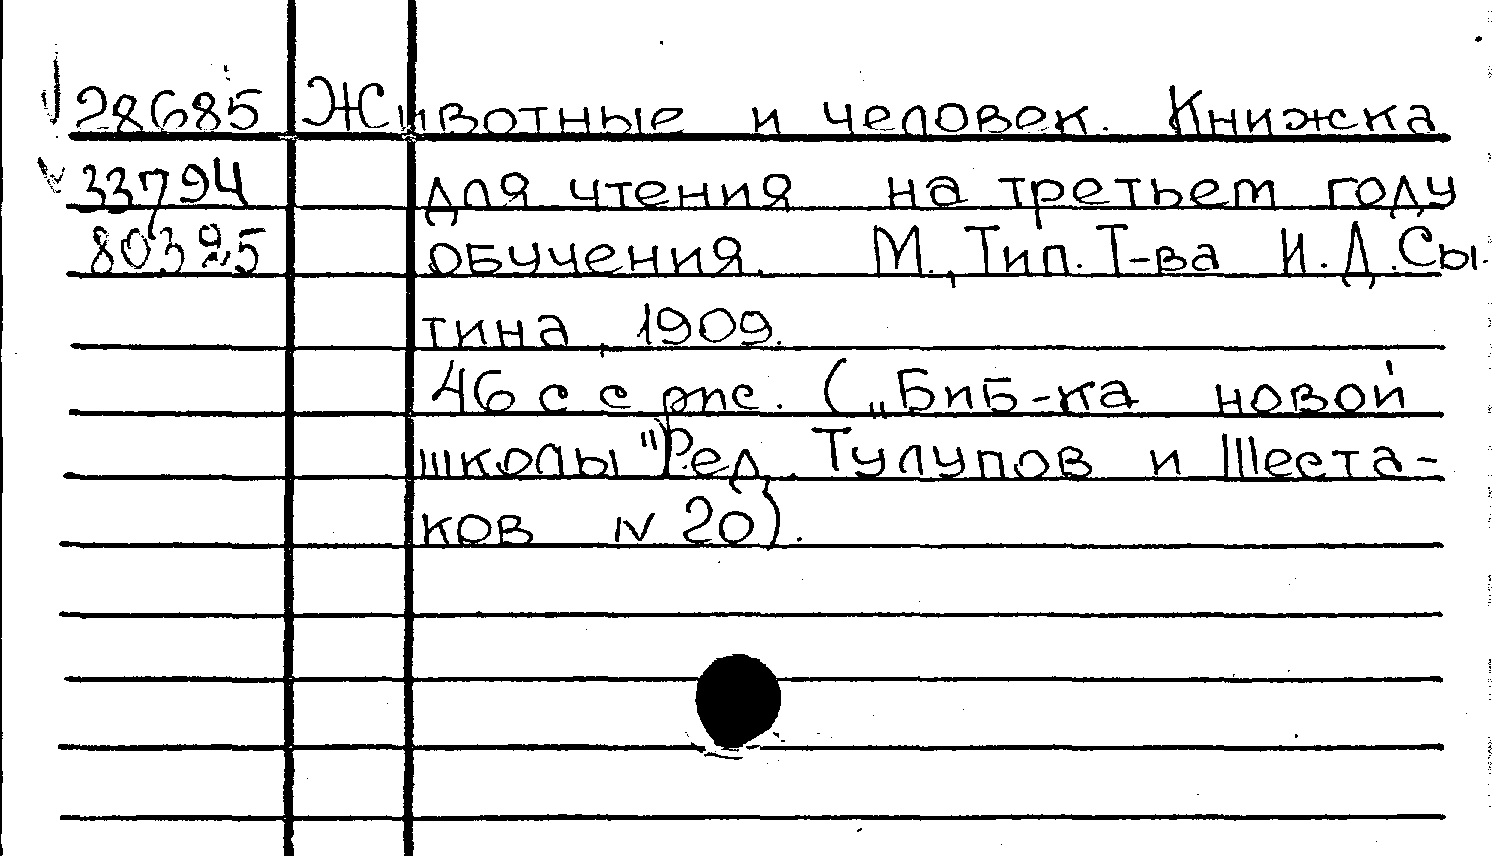 28685 Животные и человек. Книжка
33794 для чтения на третьем году
80395 обучения. М., Тип. Т-ва И.Д.Сы-
тина, 1909.
46 с с рис. („Биб-ка новой
школы" Ред. Тулупов и Шеста-
ков N 20).